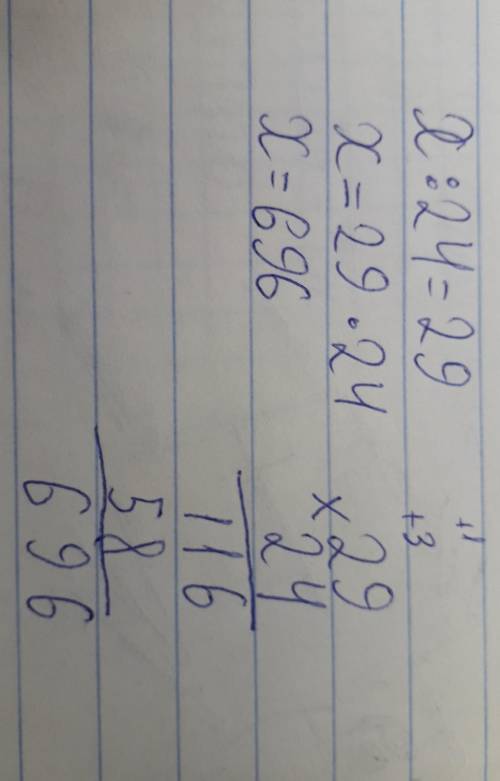 x:24=29
x=29·24
x=696
+1
+3
×29
24
116
58
696